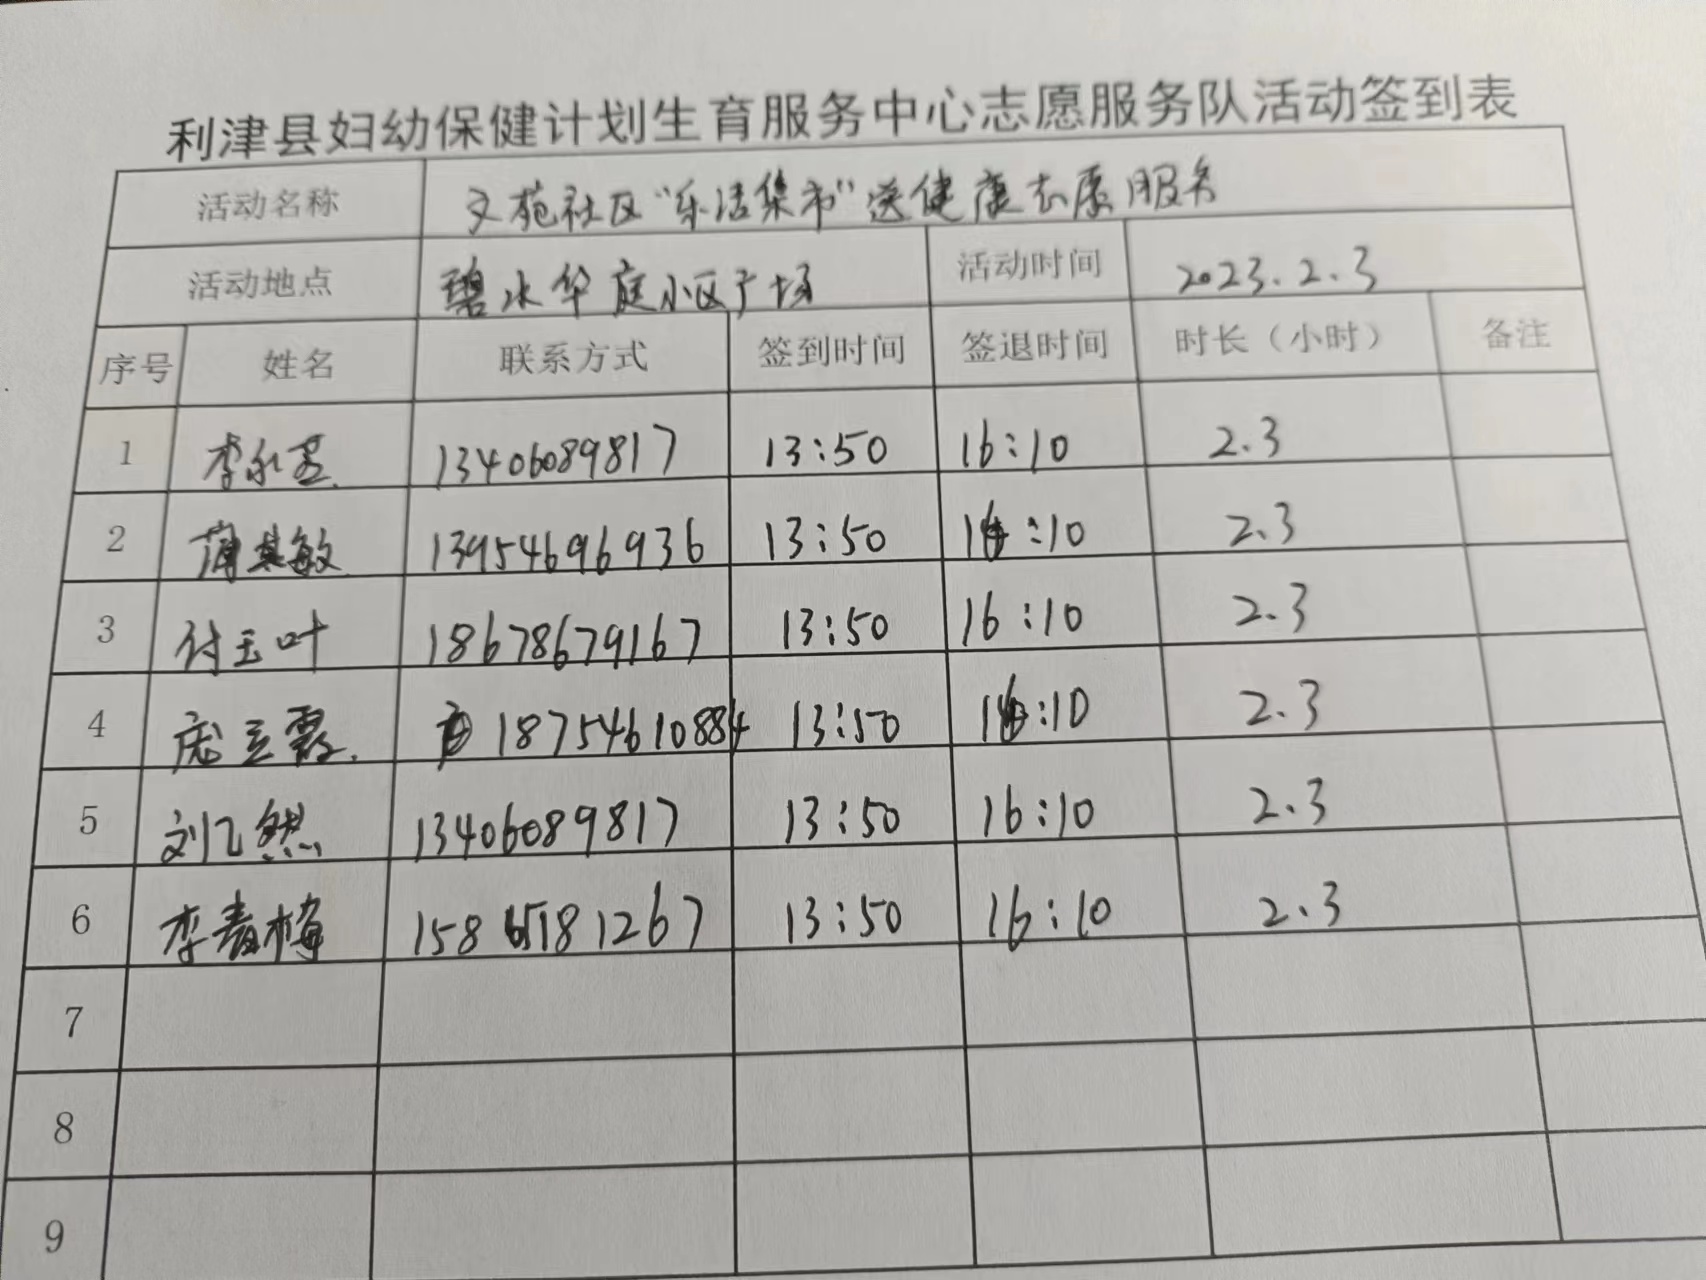 利津县妇幼保健计划生育服务中心志愿服务队活动签到表
活动名称 文苑社区"乐活集市"送健康志愿服务
活动地点 碧水华庭小区广场 活动时间 2023.2.3
序号 姓名 联系方式 签到时间 签退时间 时长（小时） 备注
1 李永 13406089817 13:50 16:10 2.3
2 薄其敏 13954696936 13:50 16:10 2.3
3 付玉叶 18678679167 13:50 16:10 2.3
4 庞 霞 18754610884 13:50 16:10 2.3
5 刘乙然 13406089817 13:50 16:10 2.3
6 李春梅 158 181267 13:50 16:10 2.3
7
8
9